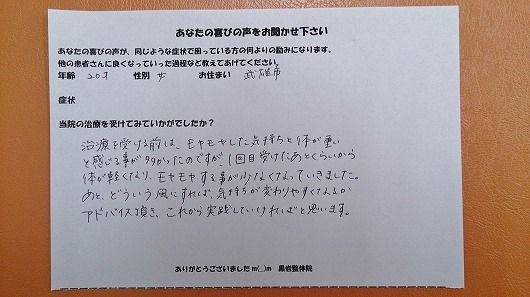 あなたの喜びの声をお聞かせ下さい
あなたの喜びの声が、同じような症状で困っている方の何よりの励みになります。
他の患者さんに良くなっていった過程など教えてあげてください。
年齢 20才 性別 女 お住まい 武雄市
症状
当院の治療を受けてみていかがでしたか？
治療を受ける前は、モヤモヤした気持ちと体が重い
と感じる事が多かったのですが、1回目受けたあとくらいから
体が軽くなり、モヤモヤする事が少なくなっていきました。
あと、どういう風にすれば、気持ちが変わりやすくなるか
アドバイス頂き、これから実践していければと思います。
ありがとうございましたm(__)m 黒岩整体院